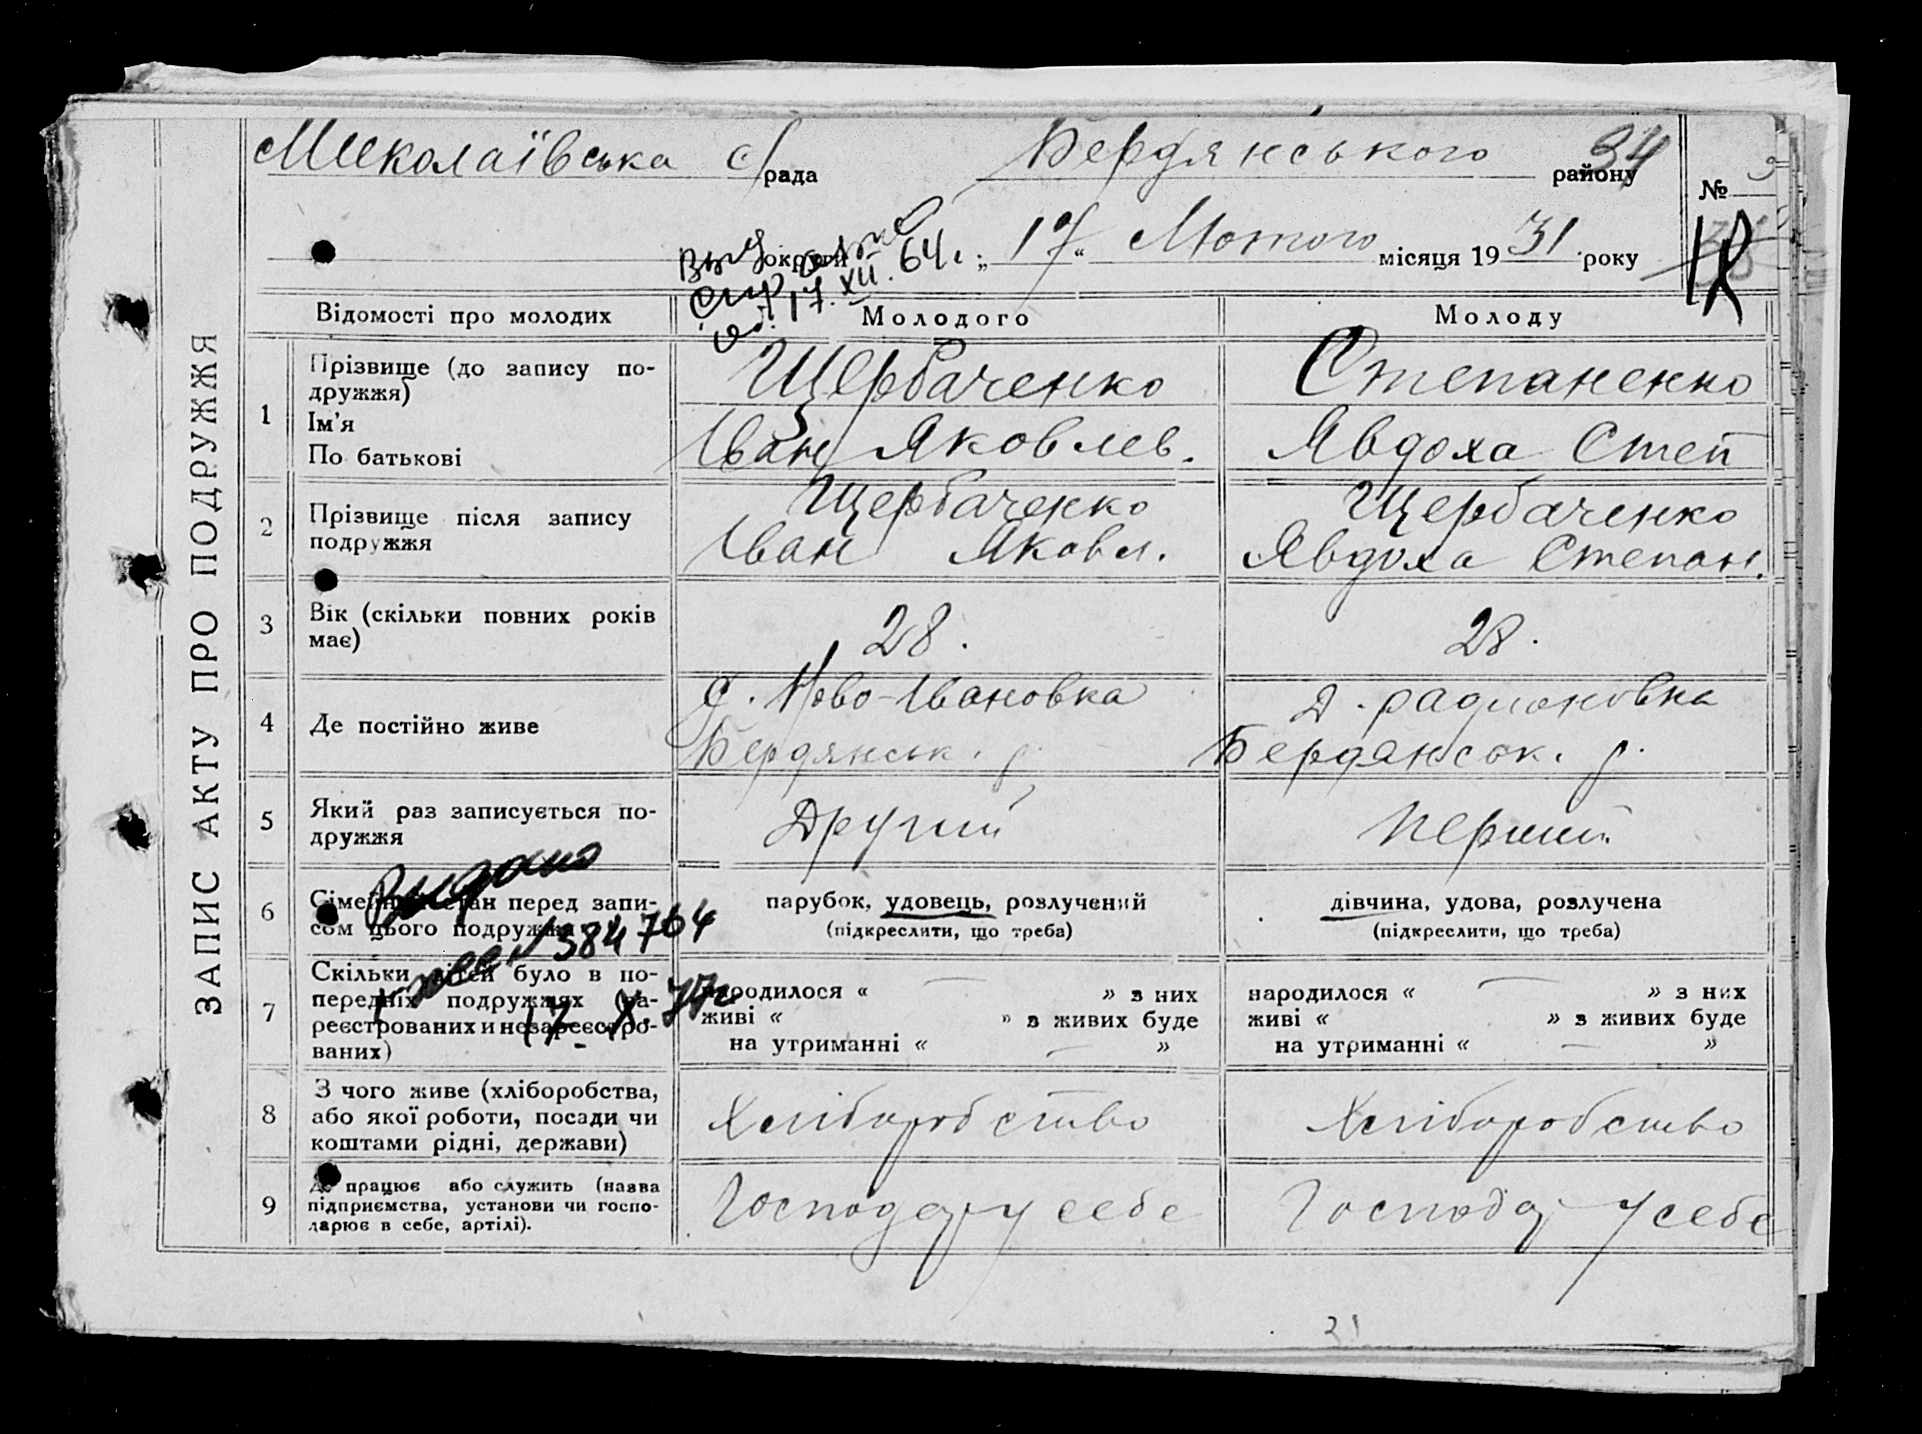 Миколаївська с/рада Бердянського району 34
№
округи „17“ Лютого місяця 1931 року
17.XII.64г.
Відомості про молодих Молодого Молоду
ЗАПИС АКТУ ПРО ПОДРУЖЖЯ
1 Прізвище (до запису по-
дружжя)
Ім'я
По батькові
Щербаченко
Іван Яковлев.
Степаненко
Явдоха Степ
2 Прізвище після запису
подружжя
Щербаченко
Іван Яковл.
Щербаченко
Явдоха Степан.
3 Вік (скільки повних років
має)
28.
28.
4 Де постійно живе
д. Ново-Івановка
Бердянськ. р.
д. радионовка
Бердянськ. р.
5 Який раз записується по-
дружжя
Другий
перший
6 Сімейний стан перед запи-
сом цього подружжя
парубок, удовець, розлучений
(підкреслити, що треба)
дівчина, удова, розлучена
(підкреслити, що треба)
Выдано
384764
17.X.77г
7 Скільки дітей було в по-
передніх подружжях (за-
реєстрованих и незареєстро-
ваних)
народилося « — » з них
живі « » з живих буде
на утриманні « — »
народилося « — » з них
живі « » з живих буде
на утриманні « — »
8 З чого живе (хліборобства,
або якої роботи, посади чи
коштами рідні, держави)
Хліборобство
Хліборобство
9 Де працює або служить (назва
підприємства, установи чи госпо-
дарює в себе, артілі).
Господар у себе
Господар у себе
21